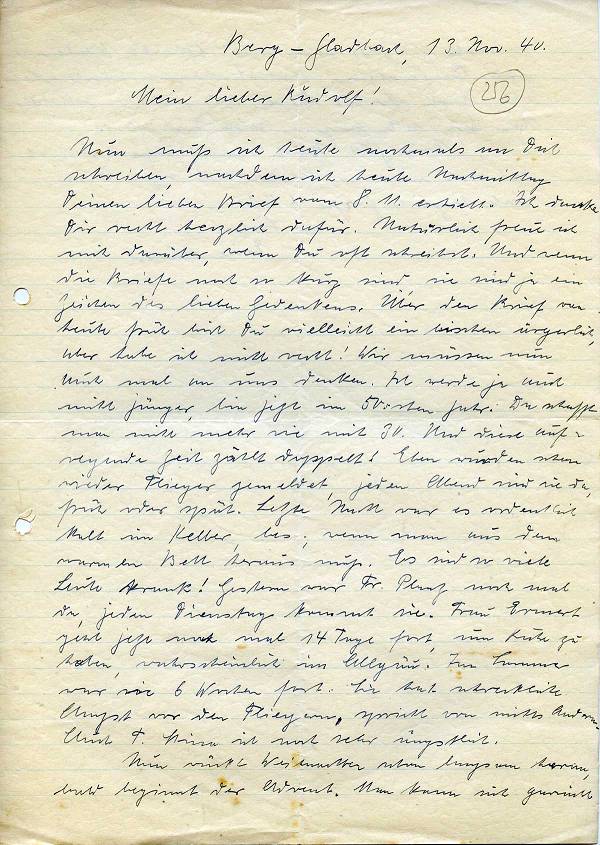 Berg-Gladbach, 13. Nov. 40.
256
Mein lieber Rudolf!
Nun muß ich heute nochmals an Dich
schreiben, nachdem ich heute Nachmittag
Deinen lieben Brief vom 8. 11. erhielt. Ich danke
Dir recht herzlich dafür. Natürlich freue ich
mich darüber, wenn Du oft schreibst. Und wenn
die Briefe noch so kurz sind, sie sind ja ein
Zeichen des lieben Gedenkens. Über den Brief von
heute früh bist Du vielleicht ein bischen ärgerlich,
aber habe ich nicht recht! Wir müssen nun
auch mal an uns denken. Ich werde ja auch
nicht jünger, bin jetzt im 50.sten Jahr. Da schafft
man nicht mehr wie mit 30. Und diese auf-
regende Zeit zählt doppelt! Eben wurden schon
wieder Flieger gemeldet, jeden Abend sind sie da,
früh oder spät. Letzte Nacht war es ordentlich
kalt im Keller, bes. wenn man aus dem
warmen Bett heraus muß. Es sind so viele
Leute krank! Gestern war Fr. noch mal
da, jeden Dienstag kommt sie. Frau
geht jetzt noch mal 14 Tage fort, um Ruhe zu
haben, wahrscheinlich im Allgäu. Im Sommer
war sie 6 Wochen fort. Sie hat schreckliche
Angst vor den Fliegern, spricht von nichts Anderem.
Auch T. ist noch sehr ängstlich.
Nun rückt Weihnachten schon langsam heran,
bald beginnt der Advent. Man kann sich garnicht